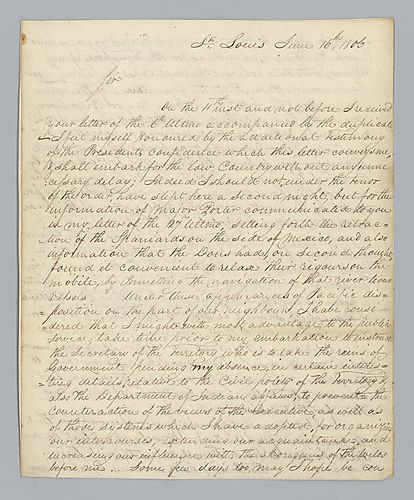 St. Louis June 16th 1806
Sir
On the 11th inst and not before I received
your letter of the 6th Ultmo accompanied by the duplicate
I feel myself honoured by the additional testimony
of the Presidents confidence which this letter conveys me,
& shall embark for the low Country without any unne
cessary delay; Indeed I should not under the tenor
of the order, have slept here a second night, but for the
information of Major Porter communicated to you
in my letter of the Ultmo, setting forth the retroac
tion of the Spaniards on the side of Mexico, and also
information that the Dons had, on second thought
found it convenient to relax their rigours on the
mobile, by permitting the navigation of that river to our
Vessels. Under these appearances of Pacific dis=
=position on the part of our neighbours, I have consi
dered that I might with most advantage to the public
service take time prior to my embarkation to instruct
the Secretary of the Territory who is to take the reins of
Government pending my absence, in certain interes=
=ting details, relative to the Civil polity of the Territory &
also the Department of Indean affairs, to prevent a the
counteraction of the views of the Executive, as well as
of those sistems which I have adopted, for organizing
our intercourses, extending our acquaintance, and
increasing our influence with the strangers of the
before me... Some few days too, may I hope be con